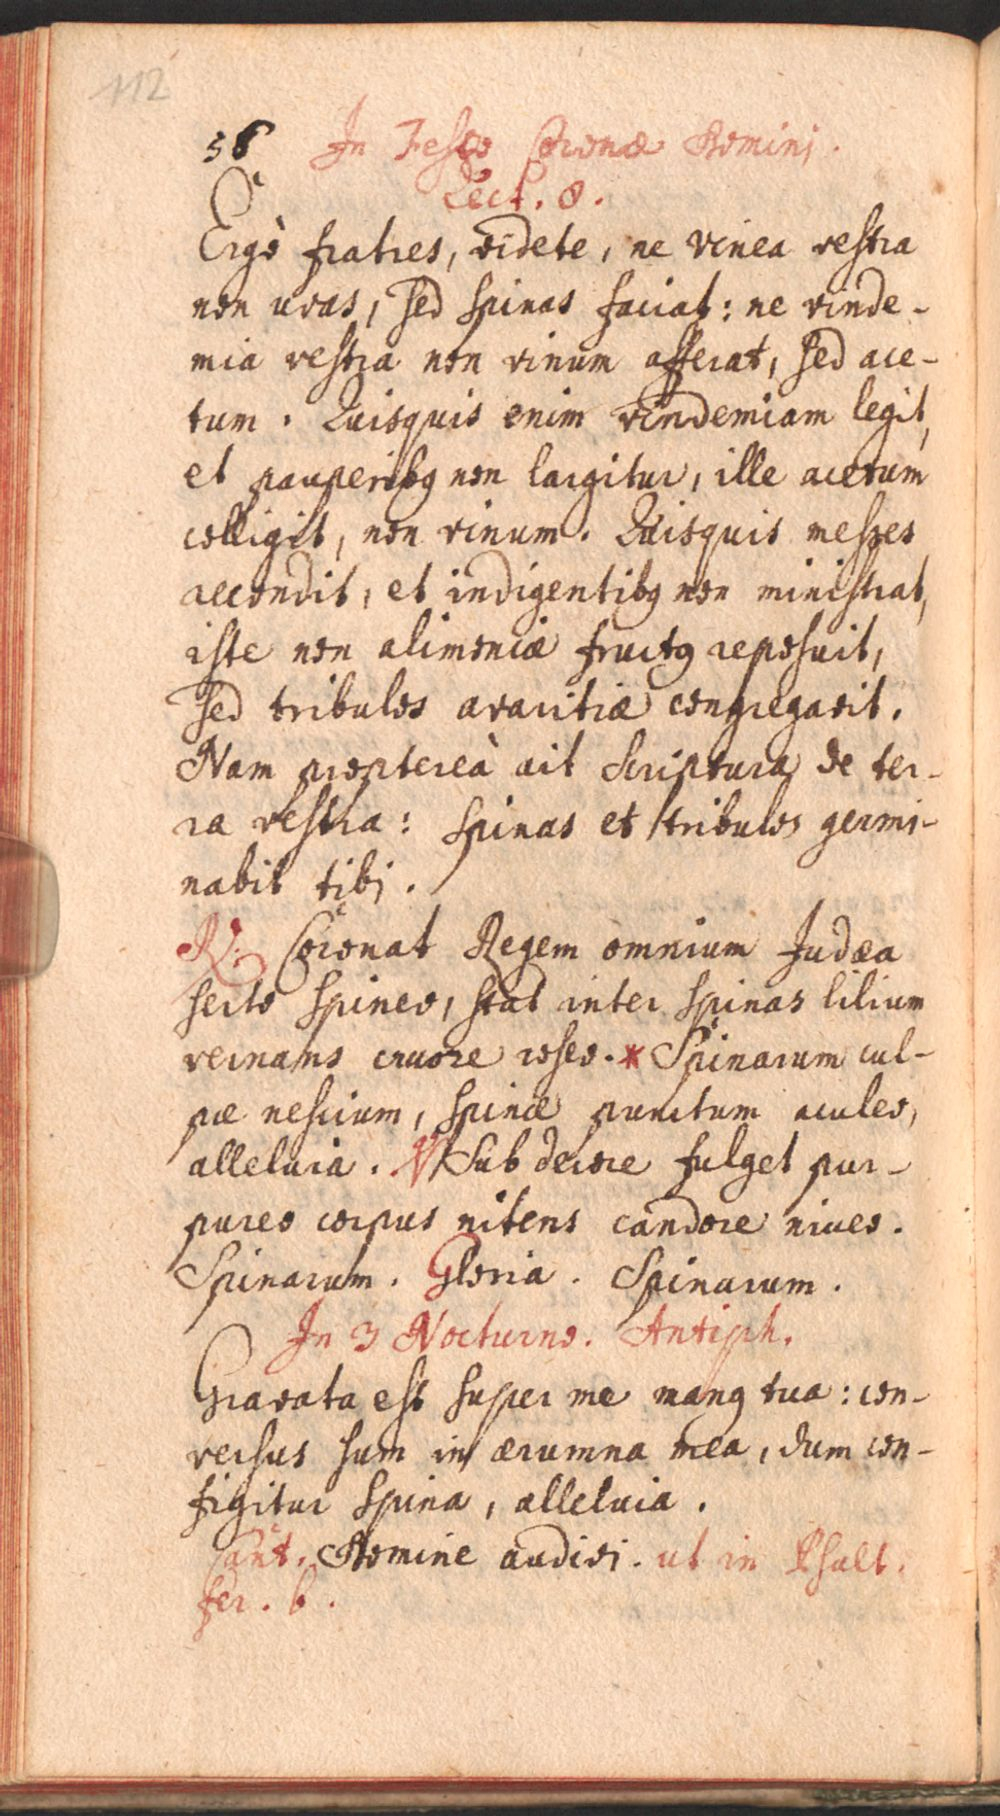 112
58 In Festo Coronæ Domini.
Lect. 8.
Ergò fratres, videte, ne vinea vestra
non uvas, sed spinas faciat: ne vinde-
mia vestra non vinum afferat, sed ace-
tum. Quisquis enim vindemiam legit,
et pauperibꝫ non largitur, ille acetum
colligit, non vinum. Quisquis messes
accondit, et indigentibꝫ non ministrat,
iste non alimoniæ fructꝫ reposuit,
sed tribulos avaritiæ congregavit.
Nam proptereà ait Scriptura de ter-
ra vestra: spinas et tribulos germi-
nabit tibj.
℟. Coronat Regem omnium Judæa
serto spineo, stat inter spinas lilium
vernans cruore roseo. * Spinarum cul-
pæ nescium, spinæ punctum aculeo,
alleluia. ℣ Sub decore fulget pur-
pureo corpus nitens candore niveo.
Spinarum. Gloria. Spinarum.
In 3 Nocturno. Antiph.
Gravata est super me manꝫ tua: con-
versus sum in ærumna mea, dum con-
figitur spina, alleluia.
Cant. Domine audivi. ut in Psalt.
fer. 6.